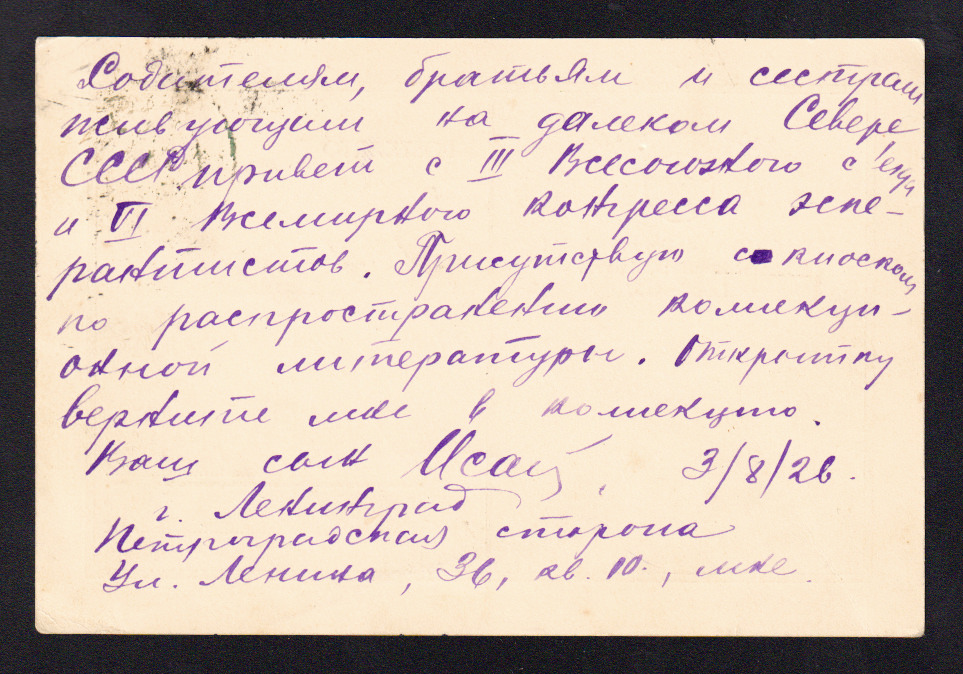 Родителям, братьям и сестрам
живующим на далеком Севере
СССР привет с III Всесоюзного с'езда
и VI Всемирного конгресса эспе-
рантистов. Присутствую с киоском
по распространению коллекци-
онной литературы. Открытку
верните мне в коллекцию.
Ваш сын Исай. 3/8/26.
г. Ленинград
Петроградская сторона
Ул. Ленина, 36, кв. 10., мне.